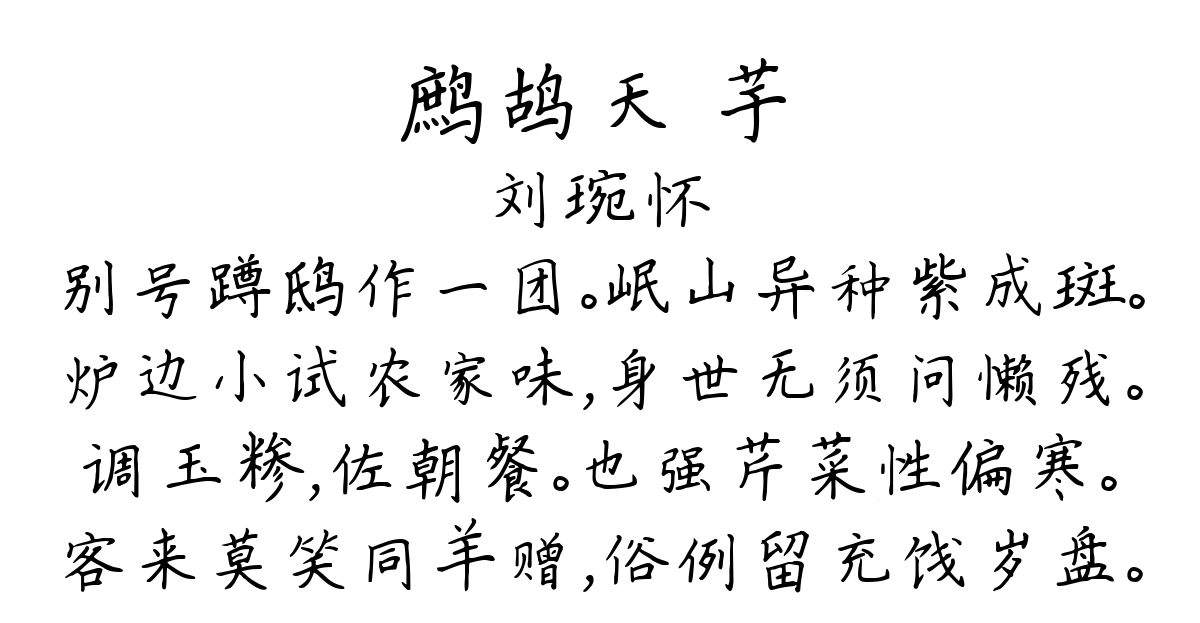 鹧鸪天 芋
刘琬怀
别号蹲鸱作一团。岷山异种紫成斑。
炉边小试农家味,身世无须问懒残。
调玉糁,佐朝餐。也强芹菜性偏寒。
客来莫笑同羊赠,俗例留充饯岁盘。